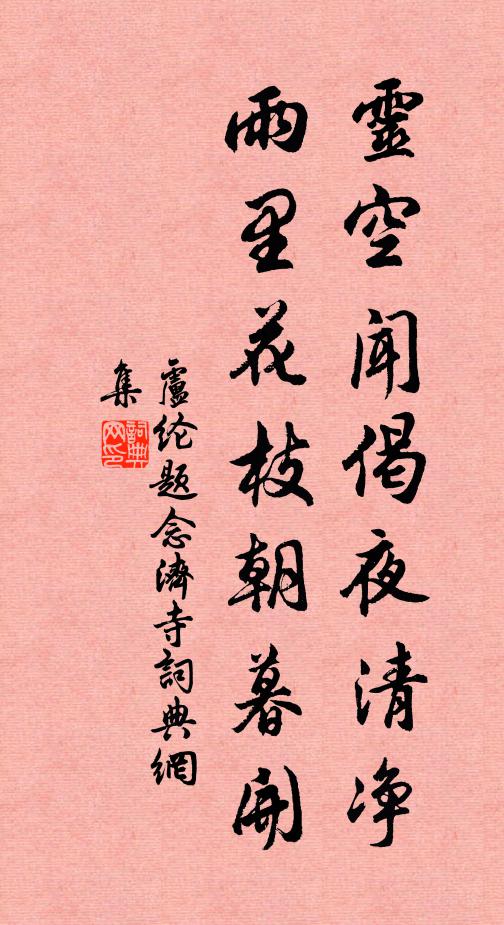 靈空聞偈夜清净
雨里花枝朝暮開
盧纶题念濟寺詞典網
集
詞典
网印